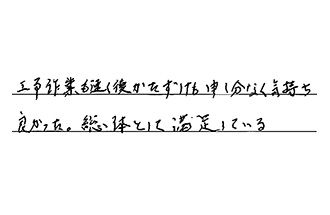 工事作業も速く後かたずけも申し分なく気持ち
良かった。総体として満足している